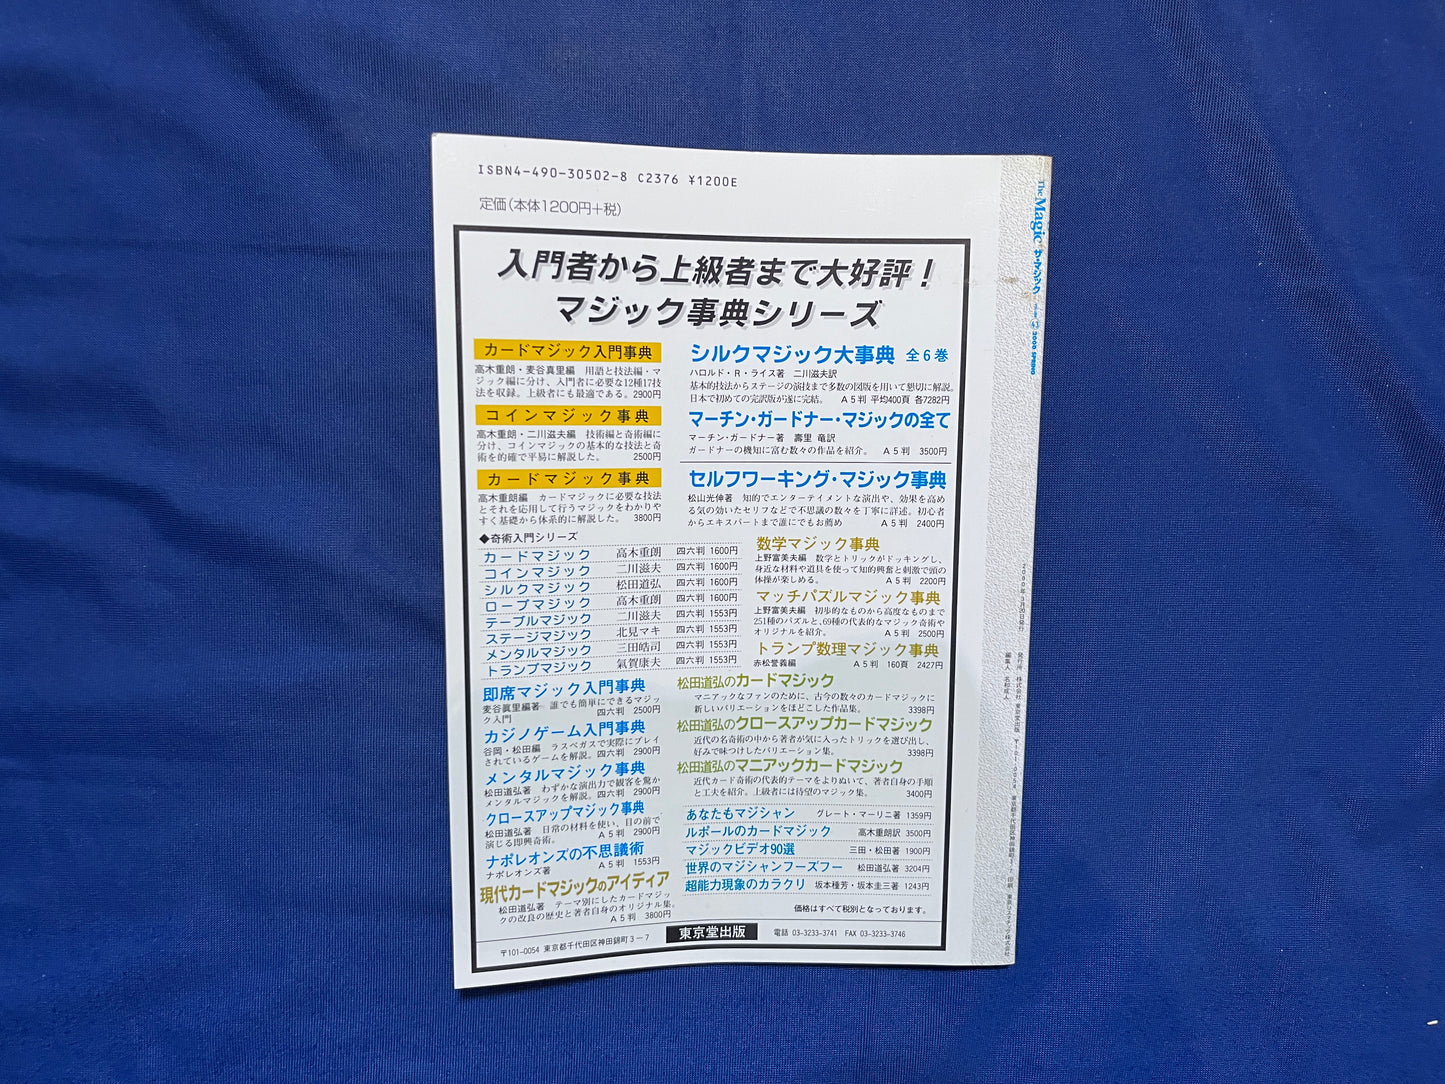 ISBN4-490-30502-8 C2376 ¥1200E
定価(本体1200円+税)
入門者から上級者まで大好評!
マジック事典シリーズ
カードマジック入門事典
高木重朗・麦谷真里編 用語と技法編・マ
ジック編に分け、入門者に必要な12種17技
法を収録。上級者にも最適である。2900円
コインマジック事典
高木重朗・二川滋夫編 技術編と奇術編に
分け、コインマジックの基本的な技法と奇
術を的確で平易に解説した。 2500円
カードマジック事典
高木重朗編 カードマジックに必要な技法
とそれを応用して行うマジックをわかりや
すく基礎から体系的に解説した。 3800円
◆奇術入門シリーズ
カードマジック 高木重朗 四六判 1600円
コインマジック 二川滋夫 四六判 1600円
シルクマジック 松田道弘 四六判 1600円
ロープマジック 高木重朗 四六判 1600円
テーブルマジック 二川滋夫 四六判 1553円
ステージマジック 北見マキ 四六判 1553円
メンタルマジック 三田皓司 四六判 1553円
トランプマジック 氣賀康夫 四六判 1553円
即席マジック入門事典
麦谷眞里編著 誰でも簡単にできるマジッ
ク入門 四六判 2500円
カジノゲーム入門事典
谷岡・松田編 ラスベガスで実際にプレイ
されているゲームを解説。四六判 2900円
メンタルマジック事典
松田道弘著 わずかな演出力で観客を驚かす
メンタルマジックを解説。四六判 2900円
クロースアップマジック事典
松田道弘著 日常の材料を使い、目の前で
演じる即興奇術。 A5判 2900円
ナポレオンズの不思議術
ナポレオンズ著 A5判 1553円
現代カードマジックのアイディア
松田道弘著 テーマ別にしたカードマジッ
クの改良の歴史と著者自身のオリジナル集。
A5判 3800円
シルクマジック大事典 全6巻
ハロルド・R・ライス著 二川滋夫訳
基本的技法からステージの演技まで多数の図版を用いて懇切に解説。
日本で初めての完訳版が遂に完結。 A5判 平均400頁 各7282円
マーチン・ガードナー・マジックの全て
マーチン・ガードナー著 壽里 竜訳
ガードナーの機知に富む数々の作品を紹介。 A5判 3500円
セルフワーキング・マジック事典
松山光伸著 知的でエンターテイメントな演出や、効果を高め
る気の効いたセリフなどで不思議の数々を丁寧に詳述。初心者
からエキスパートまで誰にでもお薦め A5判 2400円
数学マジック事典
上野富美夫編 数学とトリックがドッキングし、
身近な材料や道具を使って知的興奮と刺激で頭の
体操が楽しめる。 A5判 2200円
マッチパズルマジック事典
上野富美夫編 初歩的なものから高度なものまで
251種のパズルと、69種の代表的なマジック奇術や
オリジナルを紹介。 A5判 2500円
トランプ数理マジック事典
赤松誉義編 A5判 160頁 2427円
松田道弘のカードマジック
マニアックなファンのために、古今の数々のカードマジックに
新しいバリエーションをほどこした作品集。 3398円
松田道弘のクロースアップカードマジック
近代の名奇術の中から著者が気に入ったトリックを選び出し、
好みで味つけしたバリエーション集。 3398円
松田道弘のマニアックカードマジック
近代カード奇術の代表的テーマをよりぬいて、著者自身の手順
と工夫を紹介。上級者には待望のマジック集。 3400円
あなたもマジシャン グレート・マーリニ著 1359円
ルポールのカードマジック 高木重朗訳 3500円
マジックビデオ90選 三田・松田著 1900円
世界のマジシャンフーズフー 松田道弘著 3204円
超能力現象のカラクリ 坂本種芳・坂本圭三著 1243円
価格はすべて税別となっております。
〒101-0054 東京都千代田区神田錦町3-7 東京堂出版 電話 03-3233-3741 FAX 03-3233-3746
The Magic ザ・マジック 2000 SPRING
2000年3月20日発行
発行所 株式会社 東京堂出版 〒101-0054 東京都千代田区神田錦町3-7
編集人 名和成人